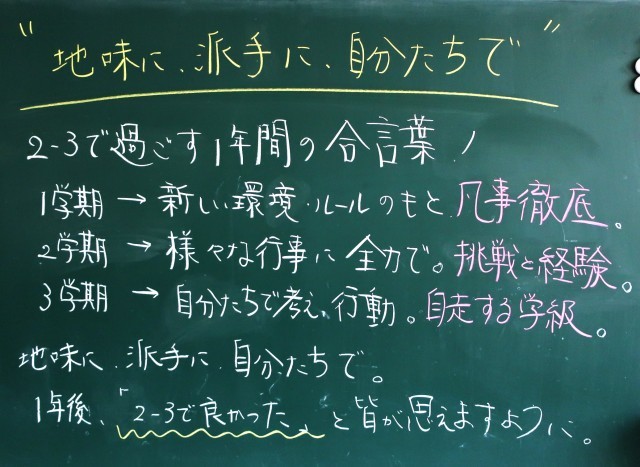 "地味に、派手に、自分たちで"
2-3で過ごす1年間の合言葉!
1学期 → 新しい環境・ルールのもと、凡事徹底。
2学期 → 様々な行事に全力で。挑戦と経験。
3学期 → 自分たちで考え、行動。自走する学級。
地味に、派手に、自分たちで。
1年後、「2-3で良かった」と皆が思えますように。